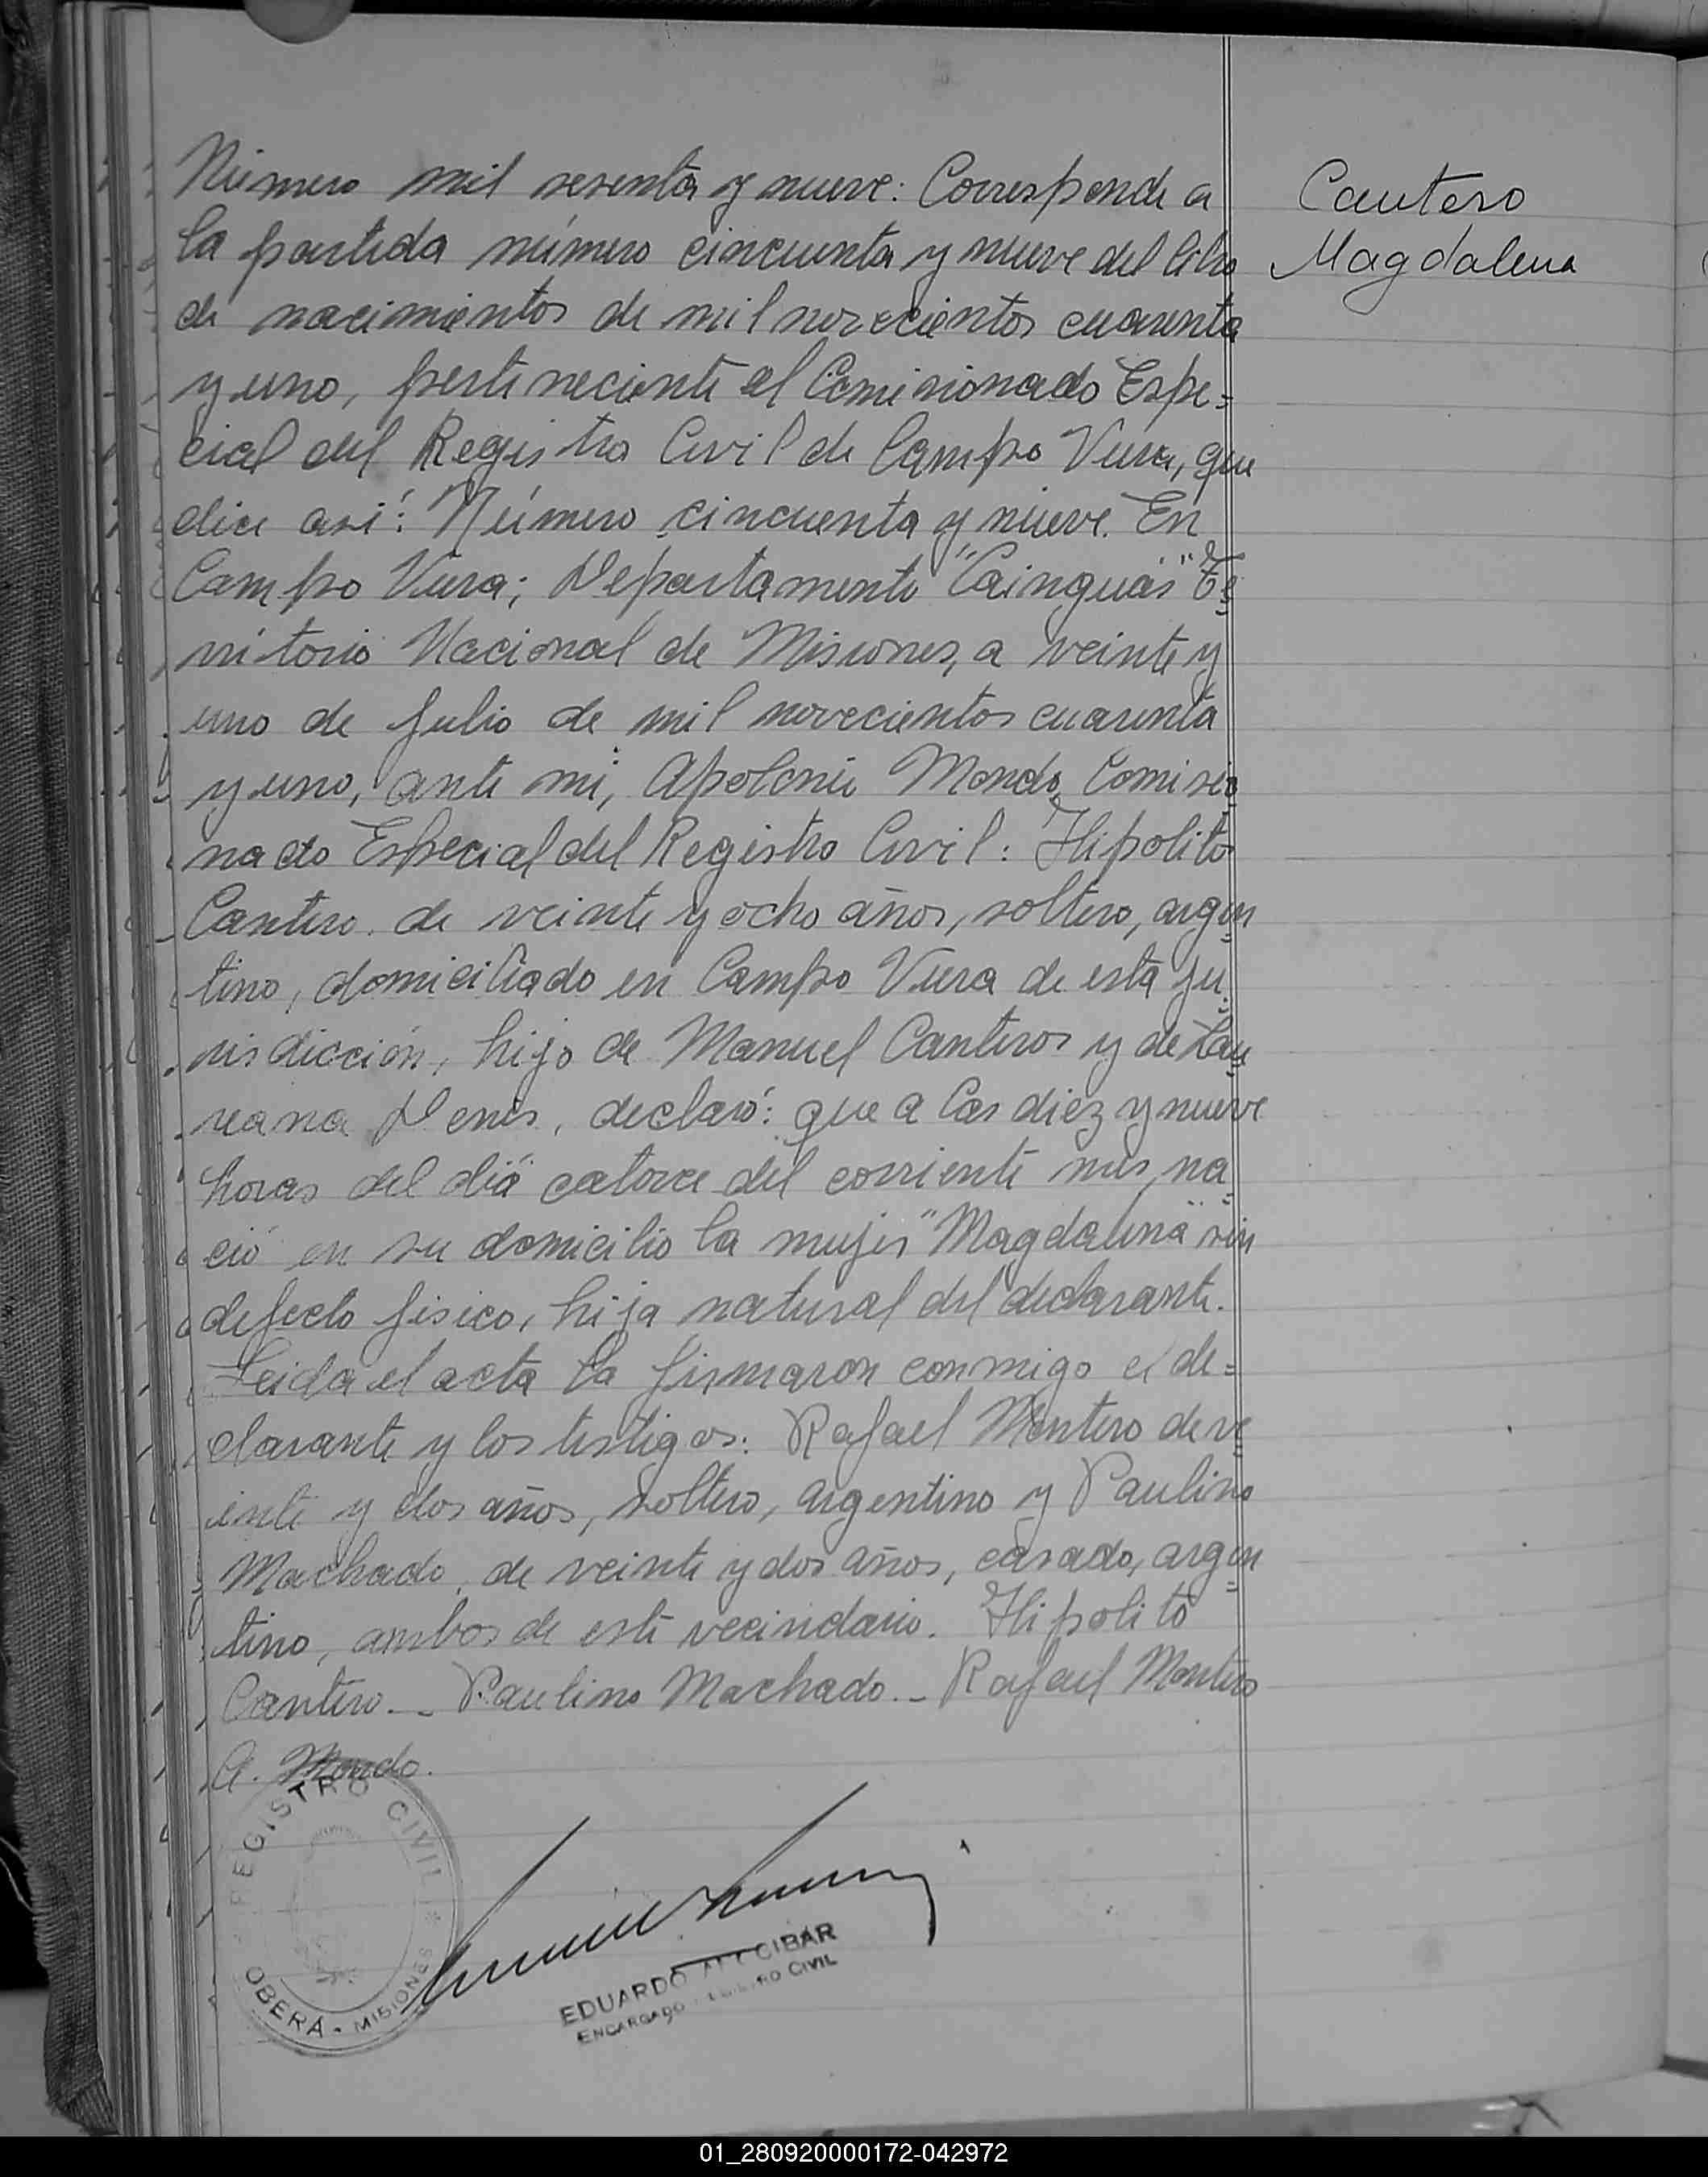 Número mil sesenta y nueve: Corresponde a
la partida número cincuenta y nueve del libro
de nacimientos de mil novecientos cuarenta
y uno, perteneciente al Comisionado Espe=
cial del Registro Civil de Campo Viera, que
dice así: Número cincuenta y nueve. En
Campo Viera; Departamento "Cainguás" Te
rritorio Nacional de Misiones, a veinte y
uno de julio de mil novecientos cuarenta
y uno, ante mí, Apolonio Mondo, Comisio
nado Especial del Registro Civil: Hipolito
Cantero. de veinte y ocho años, soltero, argen
tino, domiciliado en Campo Viera de esta ju
risdicción, hijo de Manuel Canteros y de Lau
reana Denis, declaró: que a las diez y nueve
horas del día catorce del corriente mes, na
ció en su domicilio la mujer "Magdalena" sin
defecto fisico, hija natural del declarante.
Leida el acta la firmaron conmigo el de=
clarante y los testigos: Rafael Montero de ve
inte y dos años, soltero, argentino y Paulino
Machado, de veinte y dos años, casado, argen
tino, ambos de este vecindario. Hipolito
Cantero.- Paulino Machado.- Rafael Montero
A. Mondo.
Cantero
Magdalena
REGISTRO CIVIL
OBERÁ - MISIONES
EDUARDO
ENCARGADO REGISTRO CIVIL
01_280920000172-042972